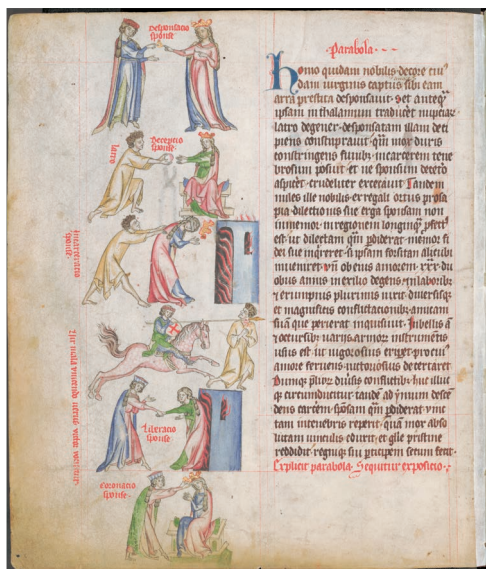 Desponsacio
sponse
latro
Deceptio
sponse
Incarceratio
sponse
Liberacio
sponse
Coronacio
sponse
Parabola
Homo quidam nobilis decore cuiꝰ
dam virginis captus sibi eam
arra prestita desponsauit. Set anteqͣ
ipsam in thalamum traduceret nupciar̄
latro degener desponsatam illam deci
piens constuprauit. quā mox duris
constringens funibꝫ incarcerem tene
brosum posuit. et ne sponsum decet̄o
aspicet̄. crudeliter excecauit. Tandem
miles ille nobilis ex regali ortus prosa
pia dilectionis sue erga sponsam non
inmemor. in regionem longinqͣ ꝓfectꝰ
est ut dilectam quā ꝑdiderat memor fi
dei sue inqreret. si ipsam forsitan alicubi
inueniret. Vn̄ ob eius amorem xxx du
obus annis in exilio degens in laboribꝫ
⁊ erumpnis plurimis uixit. diuersisqꝫ
et magnificis conflictationibꝫ amicam
suā que perierat inquisiuit.
amore feruens uictoriosus decertaret
Dumqꝫ pluribꝫ diuersis conflictibꝫ huc illuc
qꝫ circumduceretur. tandē ad ymum descē
dens carcerem. sponsam quā ꝑdiderat vinc
tam in tenebris reperit. quā mox abso
lutam uinculis eduxit. et glie pristine
reddidit. regniqꝫ sui ꝑticipem secum fecit.
Explicit parabola. Sequitur expositio.